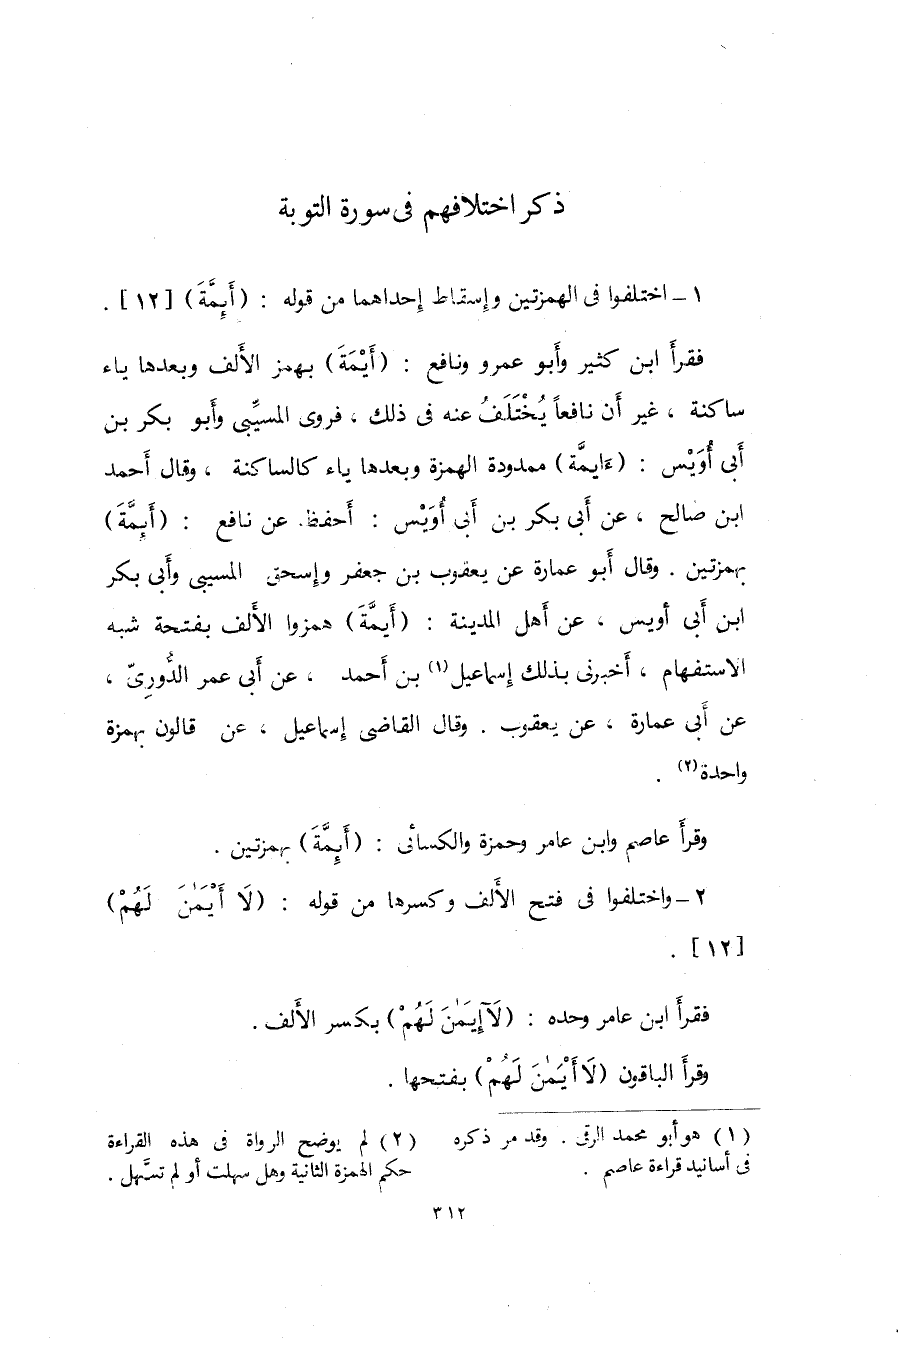 ذكر اختلافهم فى سورة التوبة
١ ـ اختلفوا فى الهمزتين وإسقاط إحداهما من قوله : (أَئِمَّةَ) [١٢] .
فقرأَ ابن كثير وأَبو عمرو ونافع : (أَيْمَّةَ) بهمز الأَلف وبعدها ياء
ساكنة ، غير أَن نافعاً يُخْتَلَفُ عنه فى ذلك ، فروى المسيِّبى وأَبو بكر بن
أَبى أُوَيْس : (ءَايمَّة) ممدودة الهمزة وبعدها ياء كالساكنة ، وقال أَحمد
ابن صالح ، عن أَبى بكر بن أَبى أُوَيْس : أَحفظ. عن نافع : (أَئِمَّةَ)
بهمزتين . وقال أَبو عمارة عن يعقوب بن جعفر وإسحق المسيبى وأَبى بكر
ابن أَبى أويس ، عن أَهل المدينة : (أَيمَّةَ) همزوا الأَلف بفتحة شبه
الاستفهام ، أَخبرنى بذلك إسماعيل(١) بن أَحمد ، عن أَبى عمر الدُّورِىّ ،
عن أَبى عمارة ، عن يعقوب . وقال القاضى إسماعيل ، عن قالون بهمزة
واحدة(٢) .
وقرأَ عاصم وابن عامر وحمزة والكسائى : (أَئِمَّةَ) بهمزتين .
٢ ـ واختلفوا فى فتح الأَلف وكسرها من قوله : (لَا أَيْمَٰنَ لَهُمْ)
[١٢] .
فقرأَ ابن عامر وحده : (لَآ إِيمَٰنَ لَهُمْ) بكسر الأَلف .
وقرأَ الباقون (لَا أَيْمَٰنَ لَهُمْ) بفتحها .
(١) هو أبو محمد الرقى . وقد مر ذكره
فى أسانيد قراءة عاصم .
(٢) لم يوضح الرواة فى هذه القراءة
حكم الهمزة الثانية وهل سهلت أو لم تسَّهل .
٣١٢